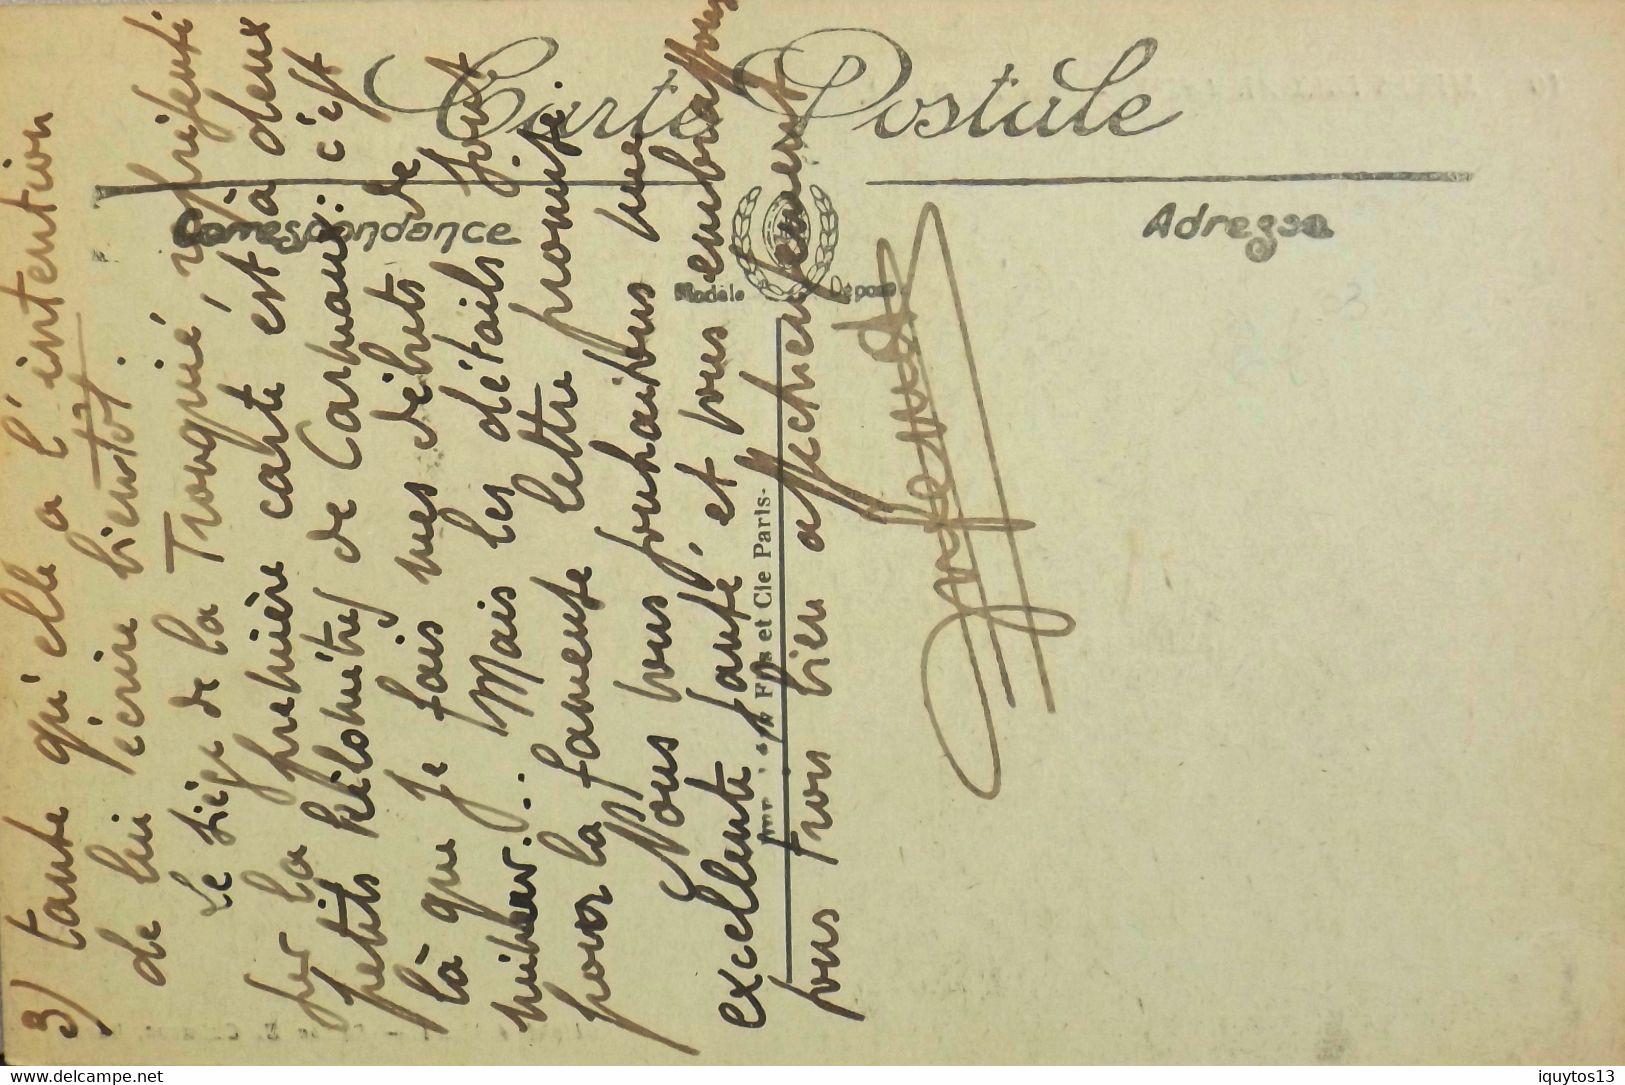 Carte Postale
Correspondance
Adresse
Modèle Déposé
Fils et Cie Paris-
3) tante qu'elle a l'intention
de lui écrire bientôt.
Le siège de la Trouquié représenté
sur la première carte est à deux
petits kilomètres de Carmaux: c'est
là que je fais mes débuts de
Mais les détails sont
pour la fameuse lettre promise.
Nous vous souhaitons une
excellente santé, et vous embrassons
tous trois bien affectueusement
delcampe.net
iquytos13